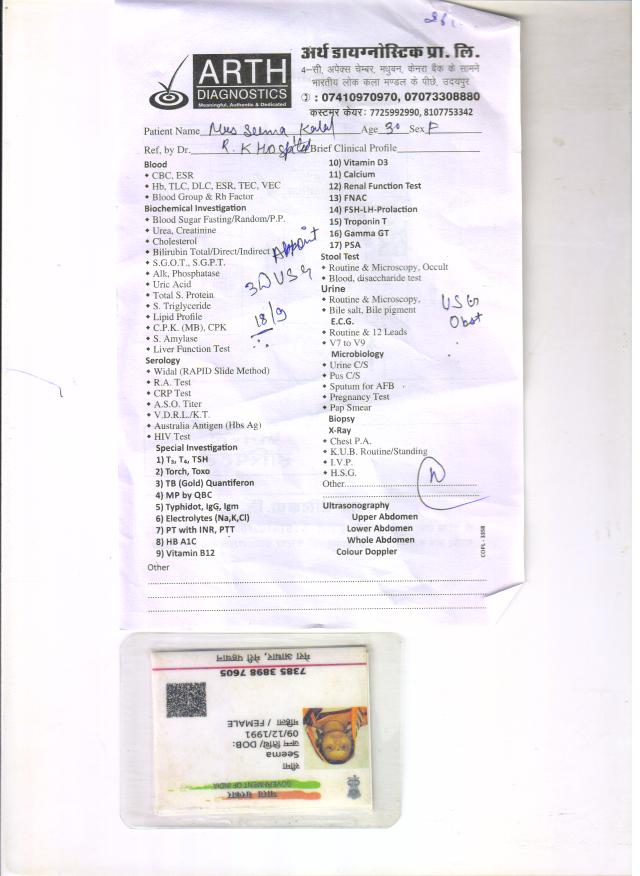 ARTH
DIAGNOSTICS
Meaningful, Authentic & Dedicated
अर्थ डायग्नोस्टिक प्रा. लि.
4-सी, अपेक्स चेम्बर, मधुबन, केनरा बैंक के सामने
भारतीय लोक कला मण्डल के पीछे, उदयपुर
: 07410970970, 07073308880
कस्टमर केयर: 7725992990, 8107753342
Patient Name Mrs Seema Age 30 Sex F
Ref, by Dr. R.K Hospital Brief Clinical Profile
Blood
CBC, ESR
Hb, TLC, DLC, ESR, TEC, VEC
Blood Group & Rh Factor
Biochemical Investigation
Blood Sugar Fasting/Random/P.P.
Urea, Creatinine
Cholesterol
Bilirubin Total/Direct/Indirect
S.G.O.T., S.G.P.T.
Alk, Phosphatase
Uric Acid
Total S. Protein
S. Triglyceride
Lipid Profile
C.P.K. (MB), CPK
S. Amylase
Liver Function Test
Appoint
3D USG
18/9
Serology
Widal (RAPID Slide Method)
R.A. Test
CRP Test
A.S.O. Titer
V.D.R.L./K.T.
Australia Antigen (Hbs Ag)
HIV Test
Special Investigation
1) T3, T4, TSH
2) Torch, Toxo
3) TB (Gold) Quantiferon
4) MP by QBC
5) Typhidot, IgG, Igm
6) Electrolytes (Na,K,Cl)
7) PT with INR, PTT
8) HB A1C
9) Vitamin B12
10) Vitamin D3
11) Calcium
12) Renal Function Test
13) FNAC
14) FSH-LH-Prolaction
15) Troponin T
16) Gamma GT
17) PSA
Stool Test
Routine & Microscopy, Occult
Blood, disaccharide test
Urine
Routine & Microscopy,
Bile salt, Bile pigment
USG
Obst
E.C.G.
Routine & 12 Leads
V7 to V9
Microbiology
Urine C/S
Pus C/S
Sputum for AFB
Pregnancy Test
Pap Smear
Biopsy
X-Ray
Chest P.A.
K.U.B. Routine/Standing
I.V.P.
H.S.G.
Other
Ultrasonography
Upper Abdomen
Lower Abdomen
Whole Abdomen
Colour Doppler
COPL - 3358
Other
भारत सरकार
GOVERNMENT OF INDIA
सीमा
Seema
जन्म तिथि/ DOB:
09/12/1991
महिला / FEMALE
7385 3898 7605
मेरा आधार, मेरी पहचान